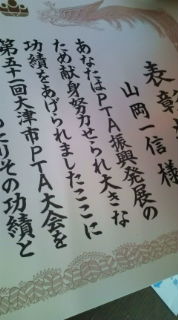 表彰
山岡一信様
あなたはPTA振興発展の
ため献身努力せられ大きな
功績をあげられましたここに
第五十一回大津市PTA大会を
その功績と